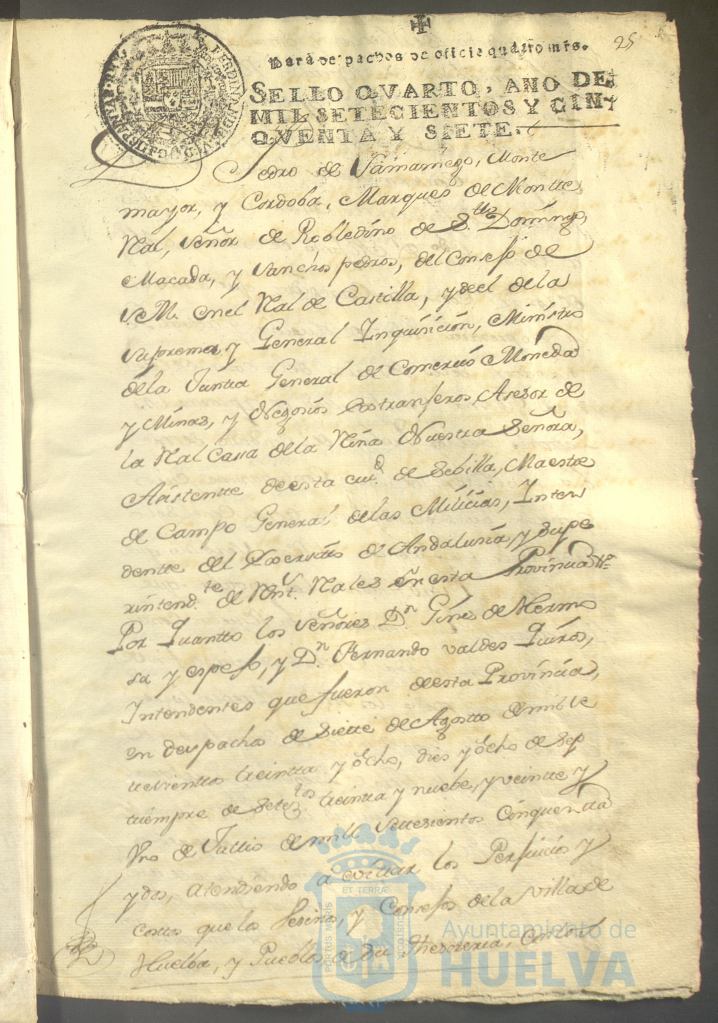 25
Para despachos de oficio quatro mrs.
SELLO QVARTO, AÑO DE
MIL SETECIENTOS Y CIN-
QVENTA Y SIETE.
Pedro de Samaniego, Monte
mayor, y Cordoba, Marques de Monte
Rial, Señor de Robledino de Sto. Domingo,
Macada, y Sanchos pedros, del Consejo de
S. M. en el Rial de Castilla, y de el de la
Suprema, y General Inquisicion, Ministro
de la Junta General de Comercio Moneda
y Minas, y Negosios estranjeros, Asesor de
la Rial Casa de la Reina Nuestra Señora,
Asistente de esta ciud. de Sebilla, Maestre
de Campo General de las Milicias, Inten
dente del Exercito de Andalusia, y supe
rintendte. de Rents. Riales en esta Provincia
Por quantto los señores Dn. Gines de Hermo
sa y espejo, y Dn. Fernando valdes Quiros,
Intendentes que fueron de esta Provincia,
en despachos de Siette de Agosto de mil se
tesientos treintta y ocho, dies y ocho de sep
tiempre de setezos. treinta y nuebe, y veinte y
Vno de Jullio de mill settesientos sinquentta
y dos, atendiendo a evittar los Perjuicios y
costos que los Vesinos, y Consejos de la villa de
Huelba, y Pueblos de su thesoreria,
Ayuntamiento de
HUELVA